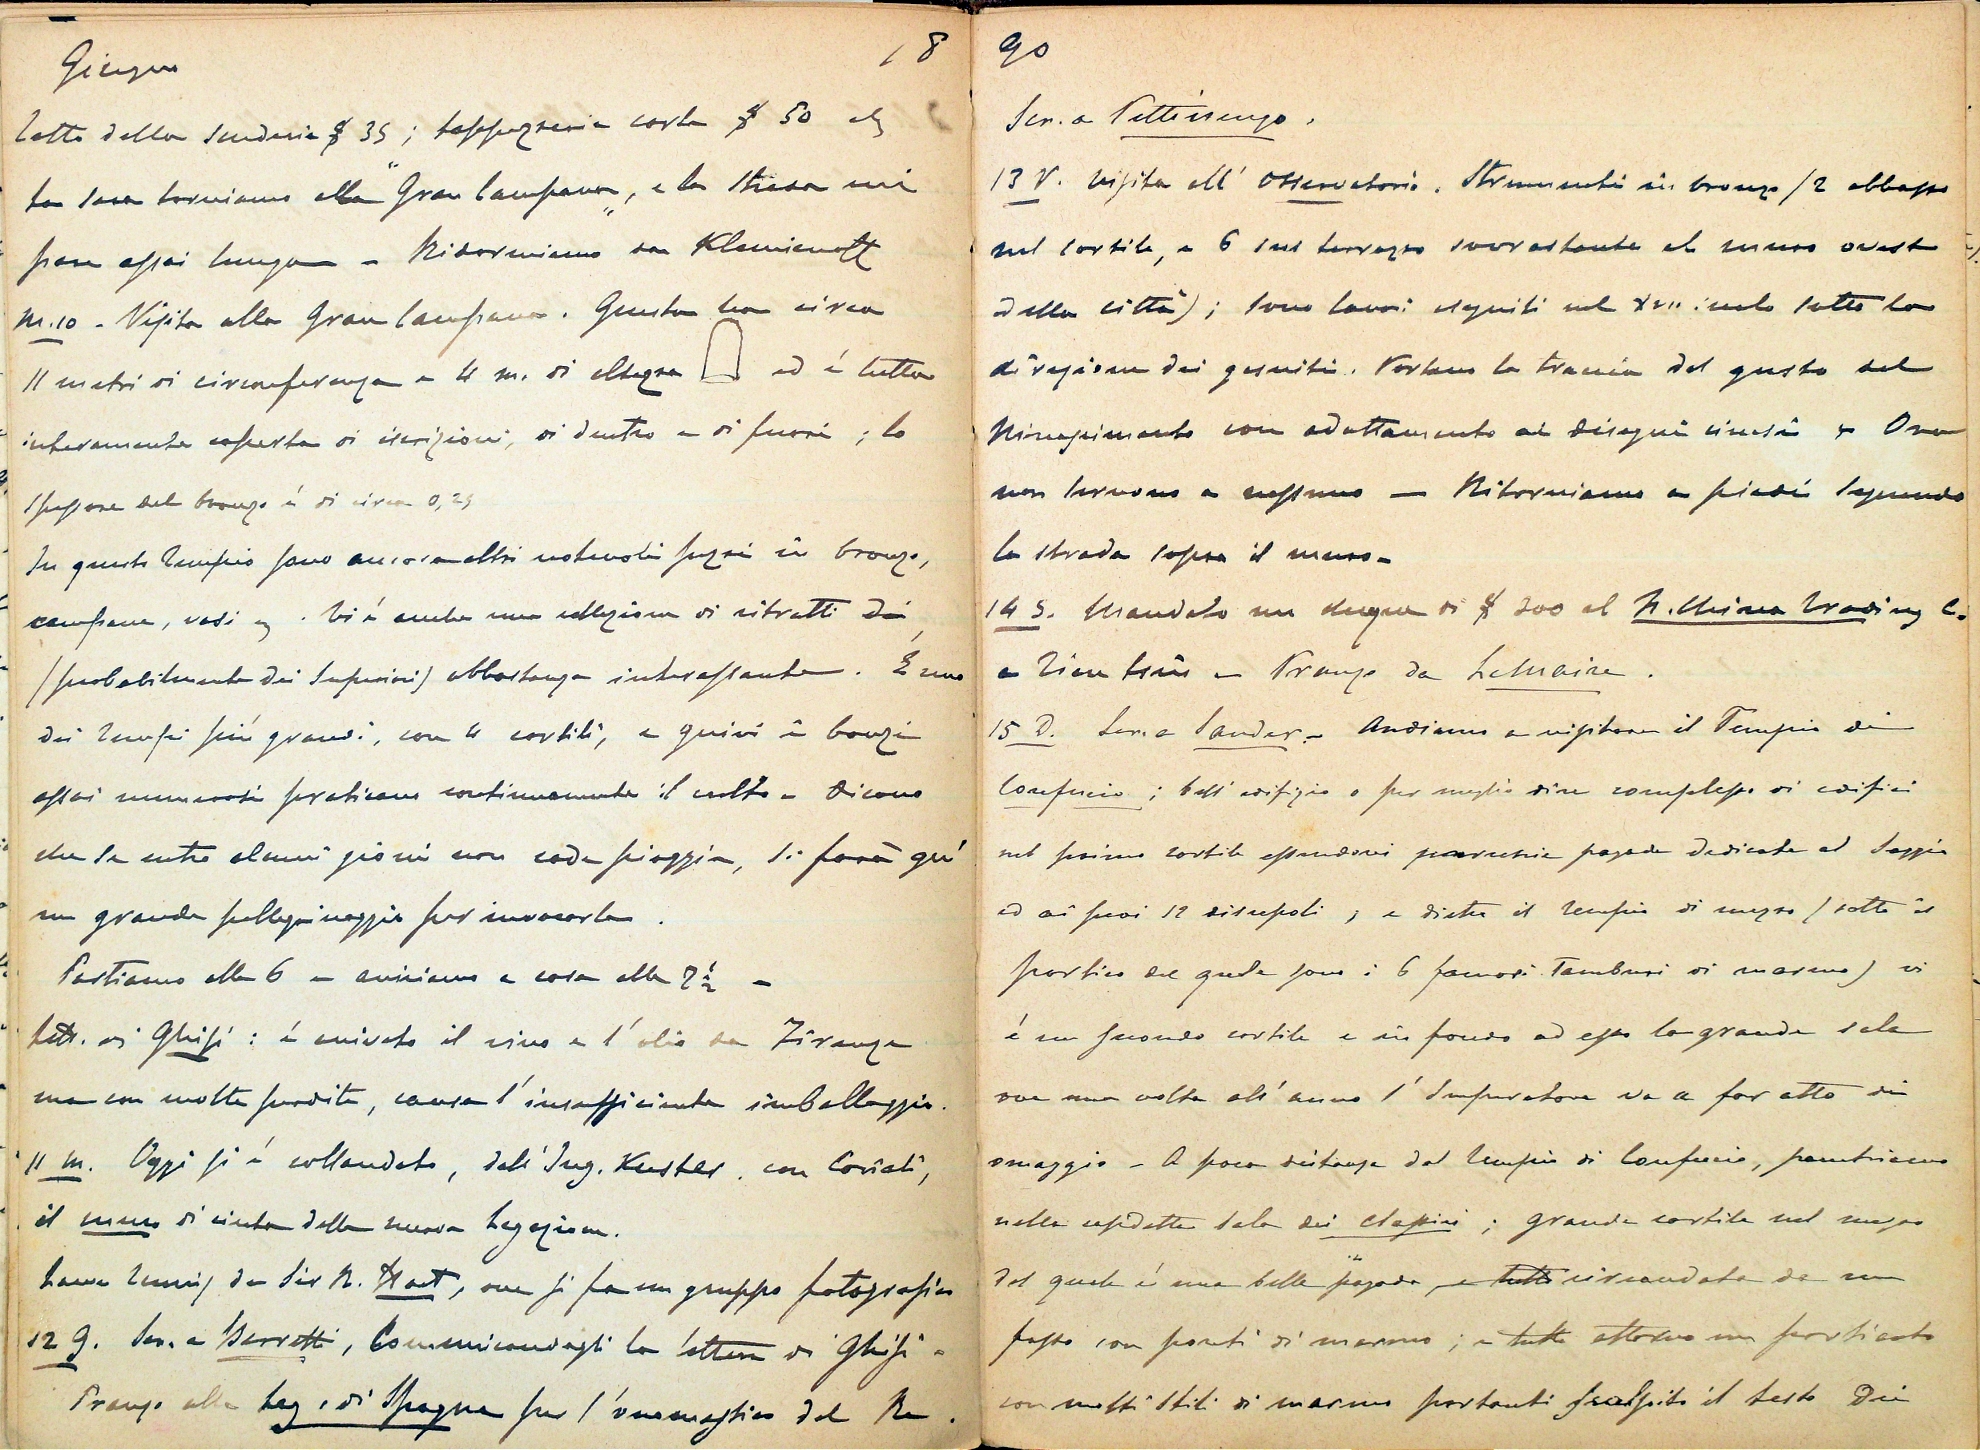 Giugno 18
tetto della scuderia $ 35; tappezzeria carta $ 50 etc
La sera torniamo alla "Gran Campana", e la strada mi
pare assai lunga - Ritorniamo da Klemenoff
M. 10 - Visita alla Gran Campana. Questa ha circa
11 metri di circonferenza e 4 m. di altezza ed é tutta
interamente coperta di iscrizioni, di dentro e di fuori; lo
spessore del bronzo é di circa 0,25
In questo tempio sono ancora altri notevoli pezzi in bronzo,
campane, vasi etc. Vi é anche una collezione di ritratti di
(probabilmente dei Superiori) abbastanza interessante. È uno
dei tempi piú grandi, con 4 cortili, e quivi i bonzi
assai numerosi praticano continuamente il culto - Dicono
che se entro alcuni giorni non cade pioggia, si farà quí
un grande pellegrinaggio per invocarla.
Partiamo alle 6 e arriviamo a casa alle 7½ -
Lett. di Ghisi: é arrivato il vino e l'olio da Firenze
ma con molte perdite, causa l'insufficiente imballaggio.
11 M. Oggi si é collaudato, dall'Ing. Kuster, con Coriati,
il muro di cinta della nuova Legazione.
Lawn tennis da Sir R. Hart, ove si fa un gruppo fotografico
12 G. Scr. a Berretti, comunicandogli la lettera di Ghisi -
Pranzo alla Leg. di Spagna per l'onomastico del Re.
90
Scr. a Pettinengo.
13 V. Visita all'Osservatorio. Strumenti in bronzo (2 abbasso
nel cortile, e 6 sul terrazzo sovrastante al muro ovest
della città); sono lavori eseguiti nel XVII secolo sotto la
direzione dei gesuiti. Portano la traccia del gusto del
Rinascimento con adattamento ai disegni cinesi - Ora
non servono a nessuno - Ritorniamo a piedi seguendo
la strada sopra il muro -
14 S. Mandato un chèque di $ 200 al N. China Trading C.
a Tien tsin - Pranzo da Lemaire.
15 D. Scr. a Sander - Andiamo a visitare il Tempio di
Confucio; bell'edifizio o per meglio dire complesso di edifici
nel primo cortile essendovi parecchie pagode dedicate al Saggio
ed ai suoi 12 discepoli; e dietro il tempio di mezzo (sotto il
portico del quale sono i 6 famosi tamburi di marmo) vi
é un secondo cortile e in fondo ad esso la grande sala
ove una volta all'anno l'Imperatore va a far atto di
omaggio - A poca distanza dal tempio di Confucio, penetriamo
nella cosidetta Sala dei classici; grande cortile nel mezzo
del quale é una bella "pagoda, e tutto circondata da un
fosso con ponti di marmo; e tutto attorno un porticato
con molti stili di marmo portanti scolpito il testo dei